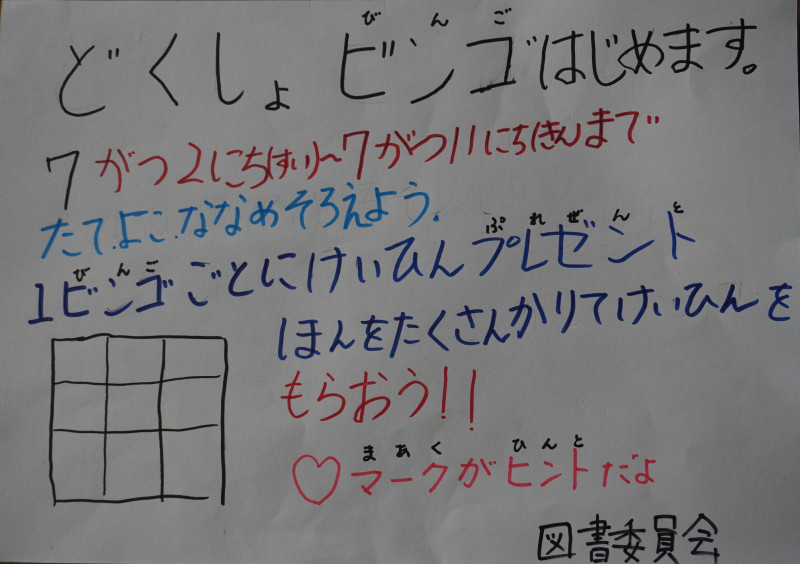 びんご
どくしょ ビンゴはじめます。
7がつ2にち(すい)〜7がつ11にち(きん)まで
たて.よこ.ななめそろえよう.
ぷれぜんと
びんご
1ビンゴごとにけいひんプレゼント
ほんをたくさんかりてけいひんを
もらおう!!
まあく ひんと
♡マークがヒントだよ
図書委員会